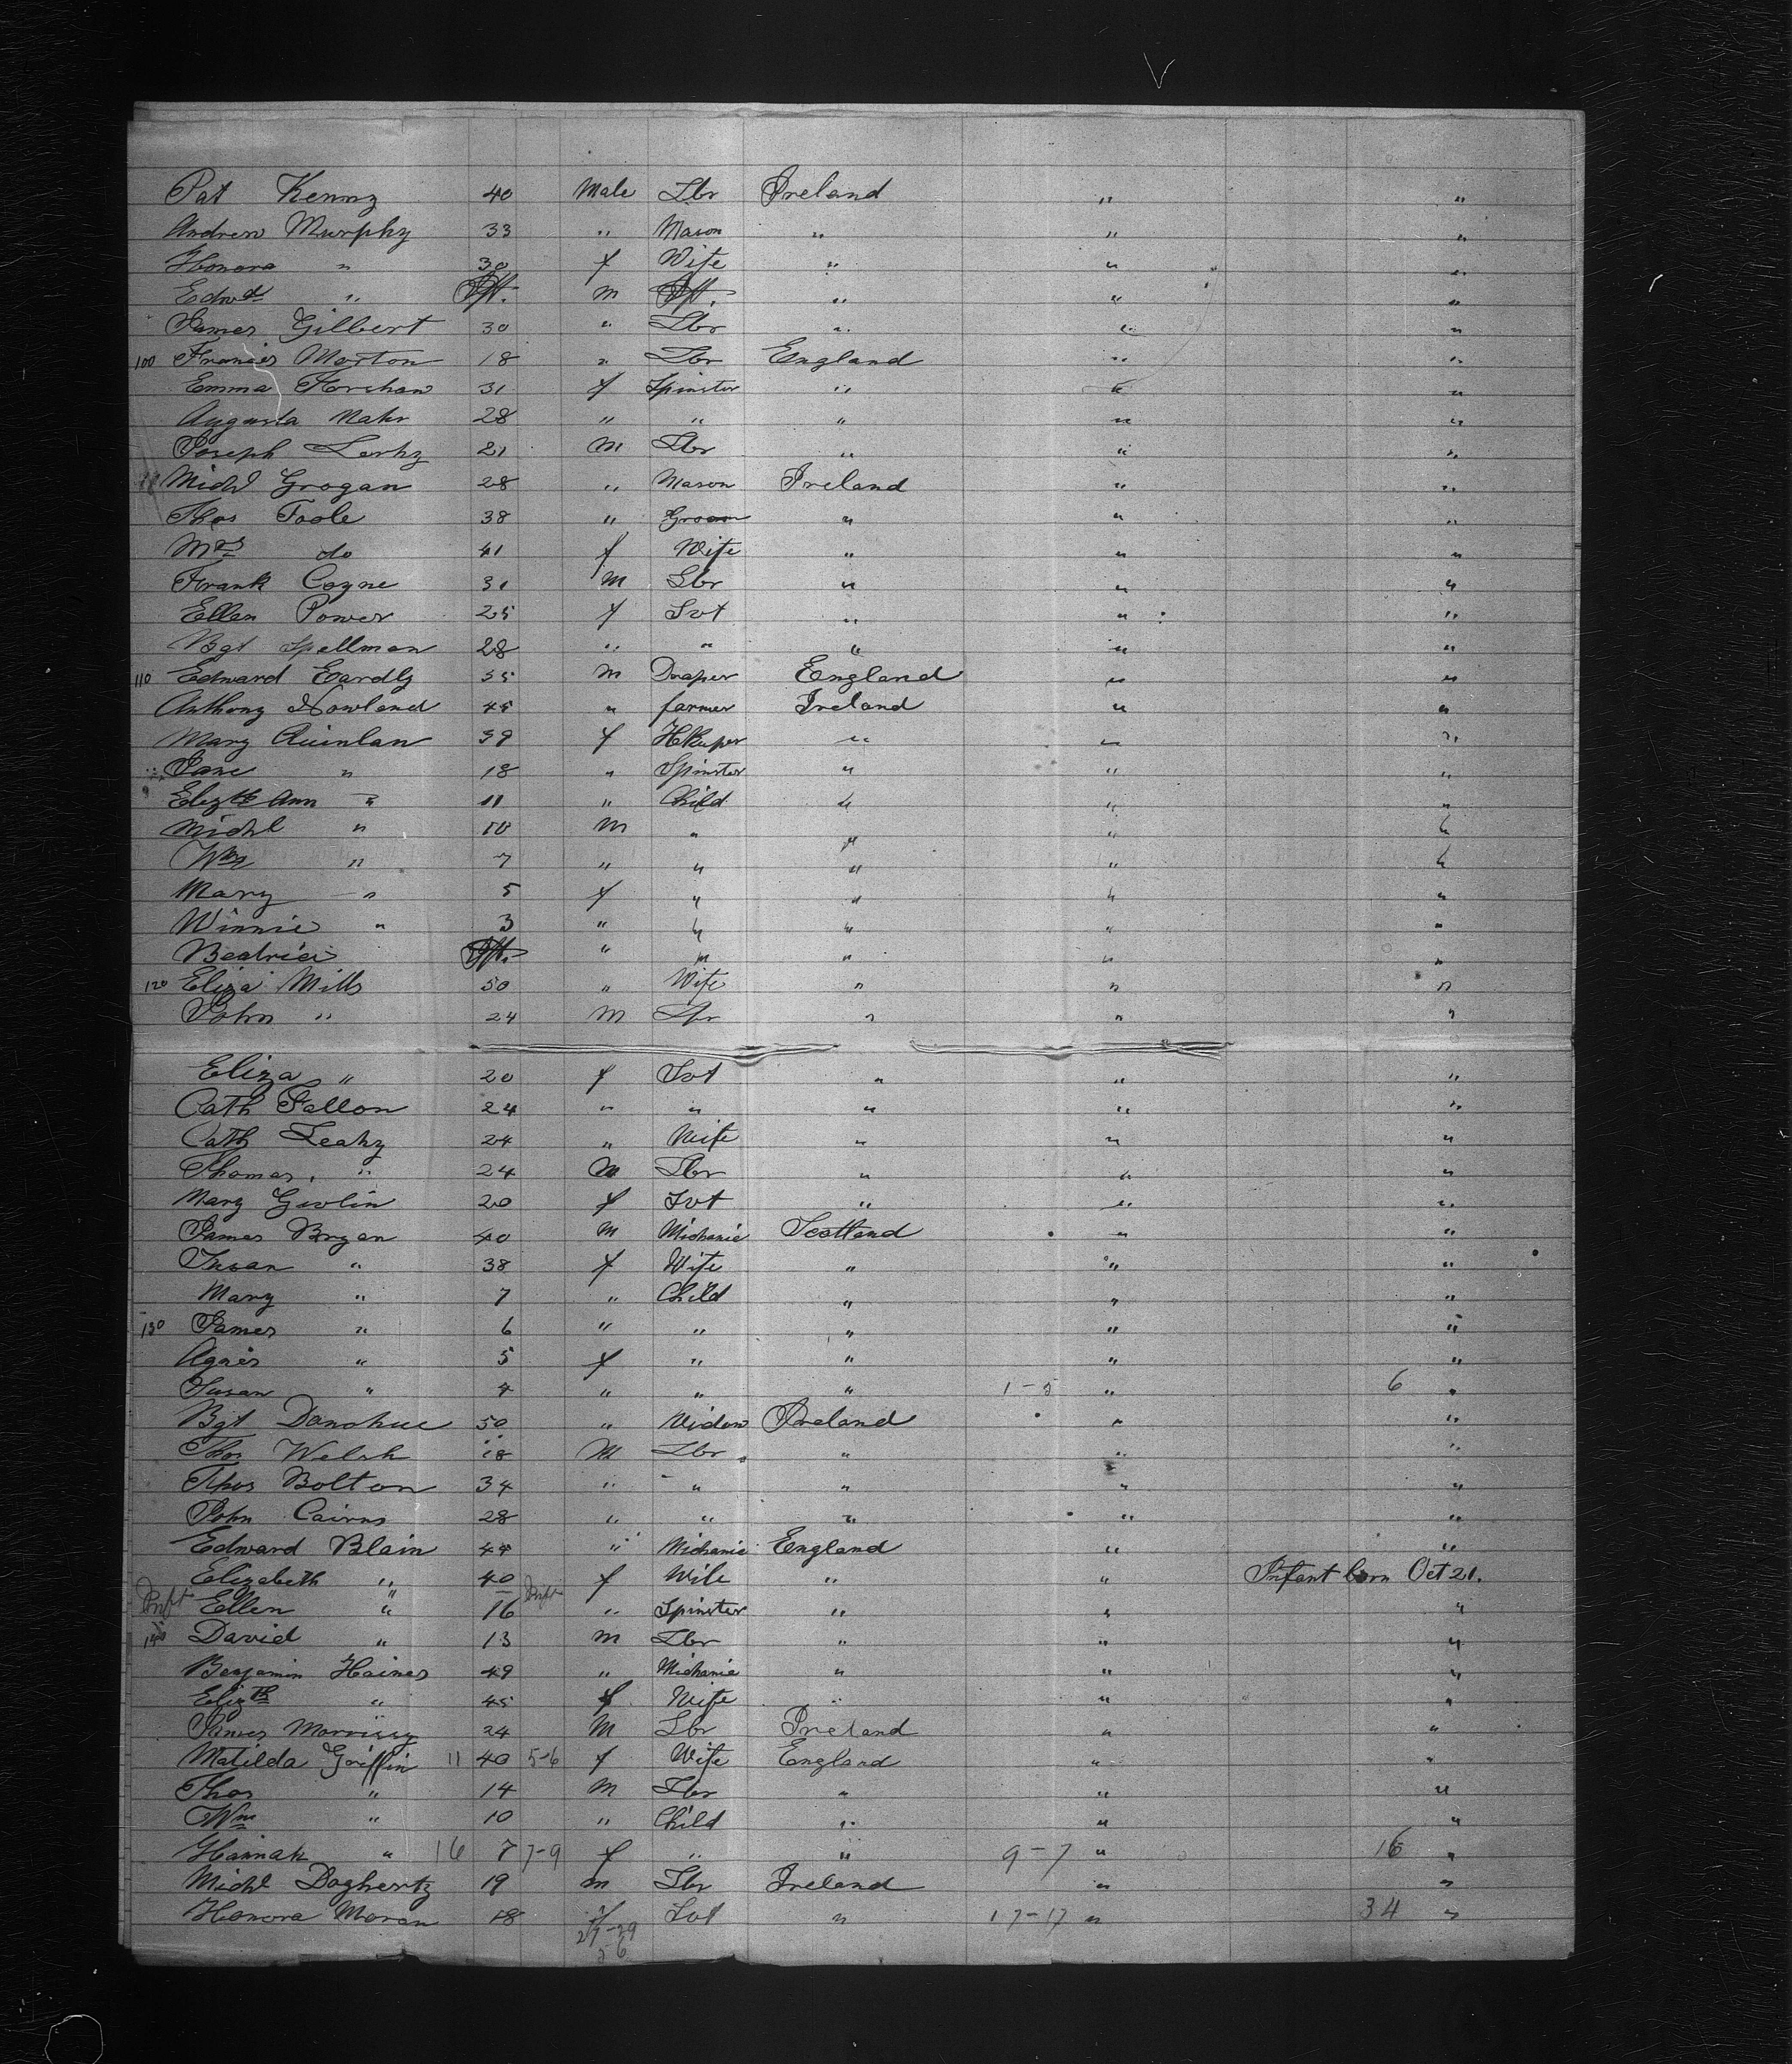 Pat Kenny 40 Male Lbr Ireland " "
Andrew Murphy 33 " Mason " " "
Honora " 30 f Wife " " "
Edwd " Inft. m Inft. " " "
James Gilbert 30 " Lbr " " "
100 Francis Morton 18 " Lbr England " "
Emma 31 f Spinster " " "
Augusta Mahr 28 " " " " "
Joseph 21 M Lbr " " "
Michl Grogan 28 " Mason Ireland " "
Thos Toole 38 " Groom " " "
Mrs do 41 f Wife " " "
Frank Coyne 31 M Lbr " " "
Ellen Power 25 f Svt " " "
Bgt Spellman 28 " " " " "
110 Edward Eardly 35 M Draper England " "
Anthony Nowland 45 " farmer Ireland " "
Mary Quinlan 39 f HKeeper " " "
Jane " 18 " Spinster " " "
Elizth Ann " 11 " Child " " "
Michl " 10 M " " " "
Wm " 7 " " " " "
Mary " 5 f " " " "
Winnie " 3 " " " " "
Beatrice Inft. " " " " "
120 Eliza Mills 50 " Wife " " "
John " 24 M Lbr " " "
Eliza " 20 f Svt " " "
Cath Fallon 24 " " " " "
Cath Leahy 24 " Wife " " "
Thomas " 24 M Lbr " " "
Mary 20 f Svt " " "
James Bryan 40 M Michanic Scotland " "
Susan " 38 f Wife " " "
Mary " 7 " Child " " "
130 James " 6 " " " " "
Agnes " 5 f " " " "
Susan " 4 " " " 1-5 " 6 "
Bgt Donohue 50 " Widow Ireland " "
Thos Welsh 18 M Lbr " " "
Thos Bolton 34 " " " " "
John Cairns 28 " " " " "
Edward Blain 44 " Michanic England " "
Elizabeth " 40 f Wife " " Infant born Oct 21.
Inft Ellen " 16 Inft " Spinster " " "
140 David " 13 M Lbr " " "
Benjamin Haines 49 " Michanic " " "
Elizth " 45 f Wife " " "
James Morrissy 24 M Lbr Ireland " "
Matilda Griffin 11 40 5-6 f Wife England " "
Thos " 14 M Lbr " " "
Wm " 10 " Child " " "
Hannah " 16 7 7-9 f " " 9-7 " 16 "
Michl Dogherty 19 m Lbr Ireland " "
Honora Moran 18 f Svt " 17-17 " 34 "
27-29
56